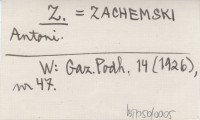 Z. = ZACHEMSKI
Antoni.
W: Gaz. Podh. 14 (1926),
nr 47.